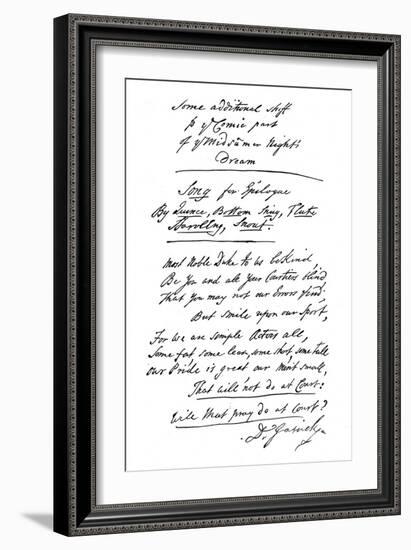 Some additional stuff
to yᵉ Comic part
of yᵉ Midsum̄er Night's
Dream
Song for Epilogue
By Quince, Bottom Snug, Flute
Starveling, Snout.
Most Noble Duke to us be kind,
Be You and all Your Courtiers blind
That You may not our Errors find,
But smile upon our Sport,
For we are simple Actors all,
Some fat, some lean, some short, some tall
Our Pride is great our Merit small,
That will not do at Court:
Will that, pray do at Court?
D. Garrick